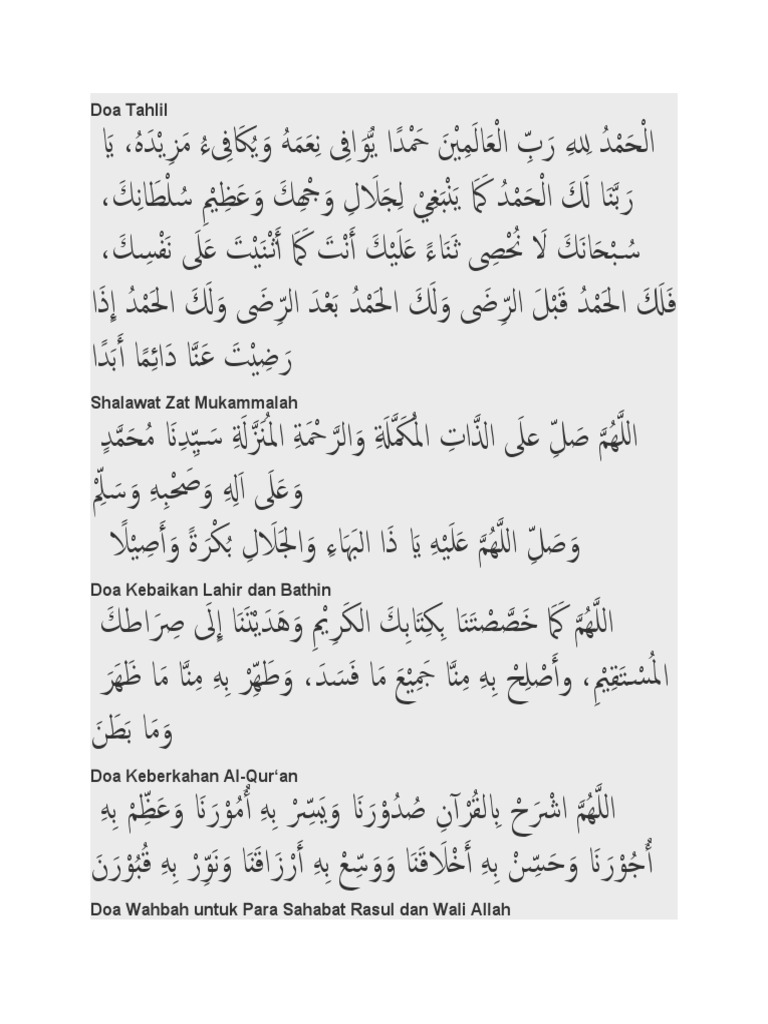 Doa Tahlil
الْحَمْدُ لِلهِ رَبِّ الْعَالَمِيْنَ حَمْدًا يُّوَافِى نِعَمَهُ وَيُكَافِىءُ مَزِيْدَهُ، يَا
رَبَّنَا لَكَ الْحَمْدُ كَمَا يَنْبَغِيْ لِجَلَالِ وَجْهِكَ وَعَظِيْمِ سُلْطَانِكَ،
سُبْحَانَكَ لَا نُحْصِى ثَنَاءً عَلَيْكَ أَنْتَ كَمَا أَثْنَيْتَ عَلَى نَفْسِكَ،
فَلَكَ الحَمْدُ قَبْلَ الرِّضَى وَلَكَ الحَمْدُ بَعْدَ الرِّضَى وَلَكَ الحَمْدُ إِذَا
رَضِيْتَ عَنَّا دَائِمًا أَبَدًا
Shalawat Zat Mukammalah
اللَّهُمَّ صَلِّ علَى الذَّاتِ المُكَمَّلَةِ وَالرَّحْمَةِ المُنَزَّلَةِ سَيِّدِنَا مُحَمَّدٍ
وَعَلَى اَلِهِ وَصَحْبِهِ وَسَلِّمْ
وَصَلِّ اللَّهُمَّ عَلَيْهِ يَا ذَا البَهَاءِ وَالجَلَالِ بُكْرَةً وَأَصِيْلًا
Doa Kebaikan Lahir dan Bathin
اللَّهُمَّ كَمَا خَصَّصْتَنَا بِكِتَابِكَ الكَرِيْمِ وَهَدَيْتَنَا إِلَى صِرَاطكَ
المُسْتَقِيْمِ، وأَصْلِحْ بِهِ مِنَّا جَمِيْعَ مَا فَسَدَ، وَطَهِّرْ بِهِ مِنَّا مَا ظَهَرَ
وَمَا بَطَنَ
Doa Keberkahan Al-Qur‘an
اللَّهُمَّ اشْرَحْ بِالقُرْآنِ صُدُوْرَنَا وَيَسِّرْ بِهِ أُمُوْرَنَا وَعَظِّمْ بِهِ
أُجُوْرَنَا وَحَسِّنْ بِهِ أَخْلَاقَنَا وَوَسِّعْ بِهِ أَرْزَاقَنَا وَنَوِّرْ بِهِ قُبُوْرَنَ
Doa Wahbah untuk Para Sahabat Rasul dan Wali Allah